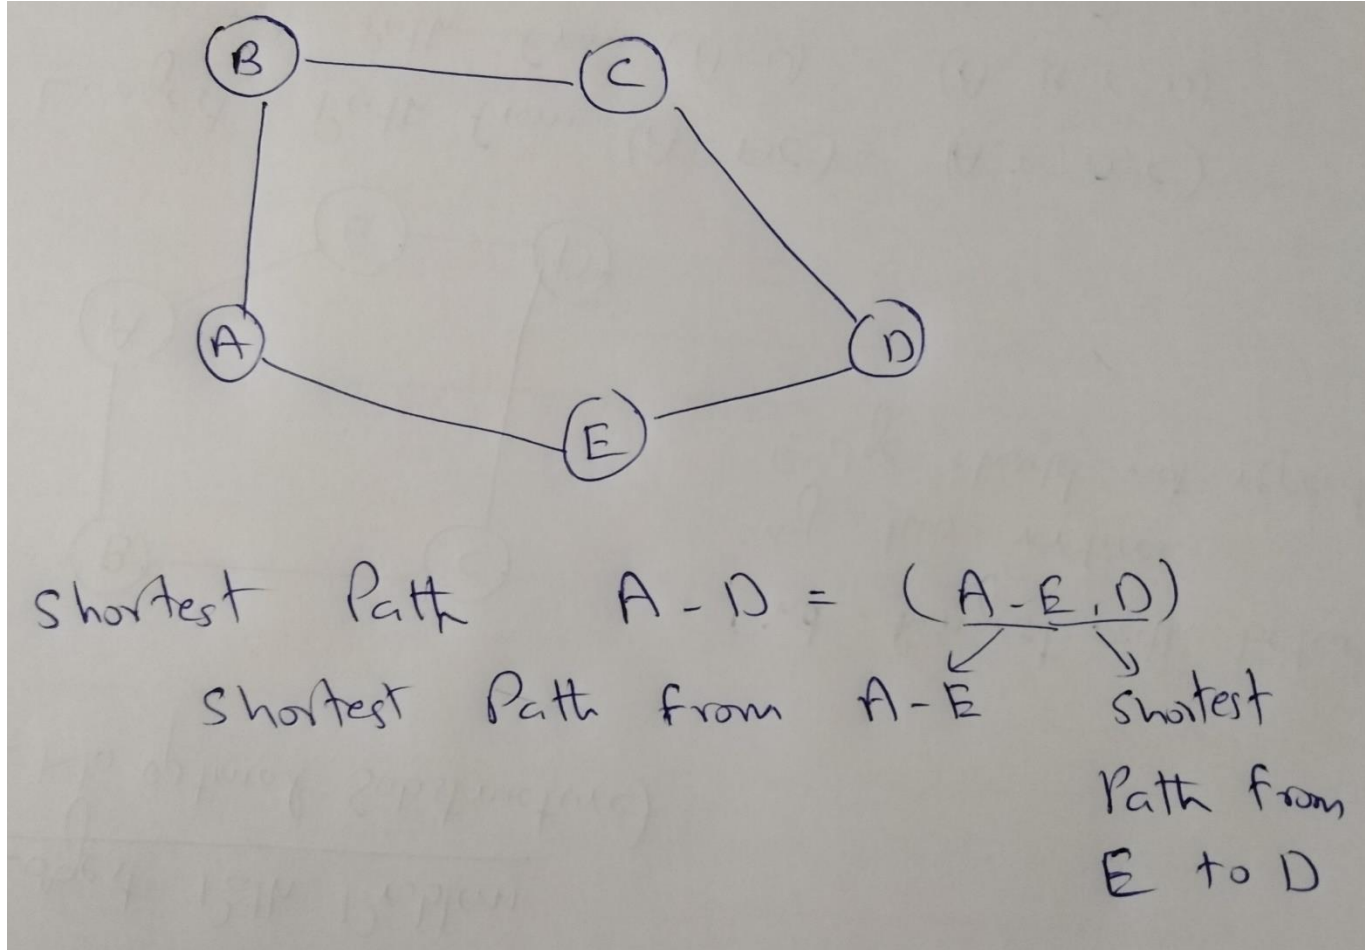 B
C
A
D
E
Shortest Path A - D = (A - E, D)
Shortest Path from A - E
Shortest
Path from
E to D